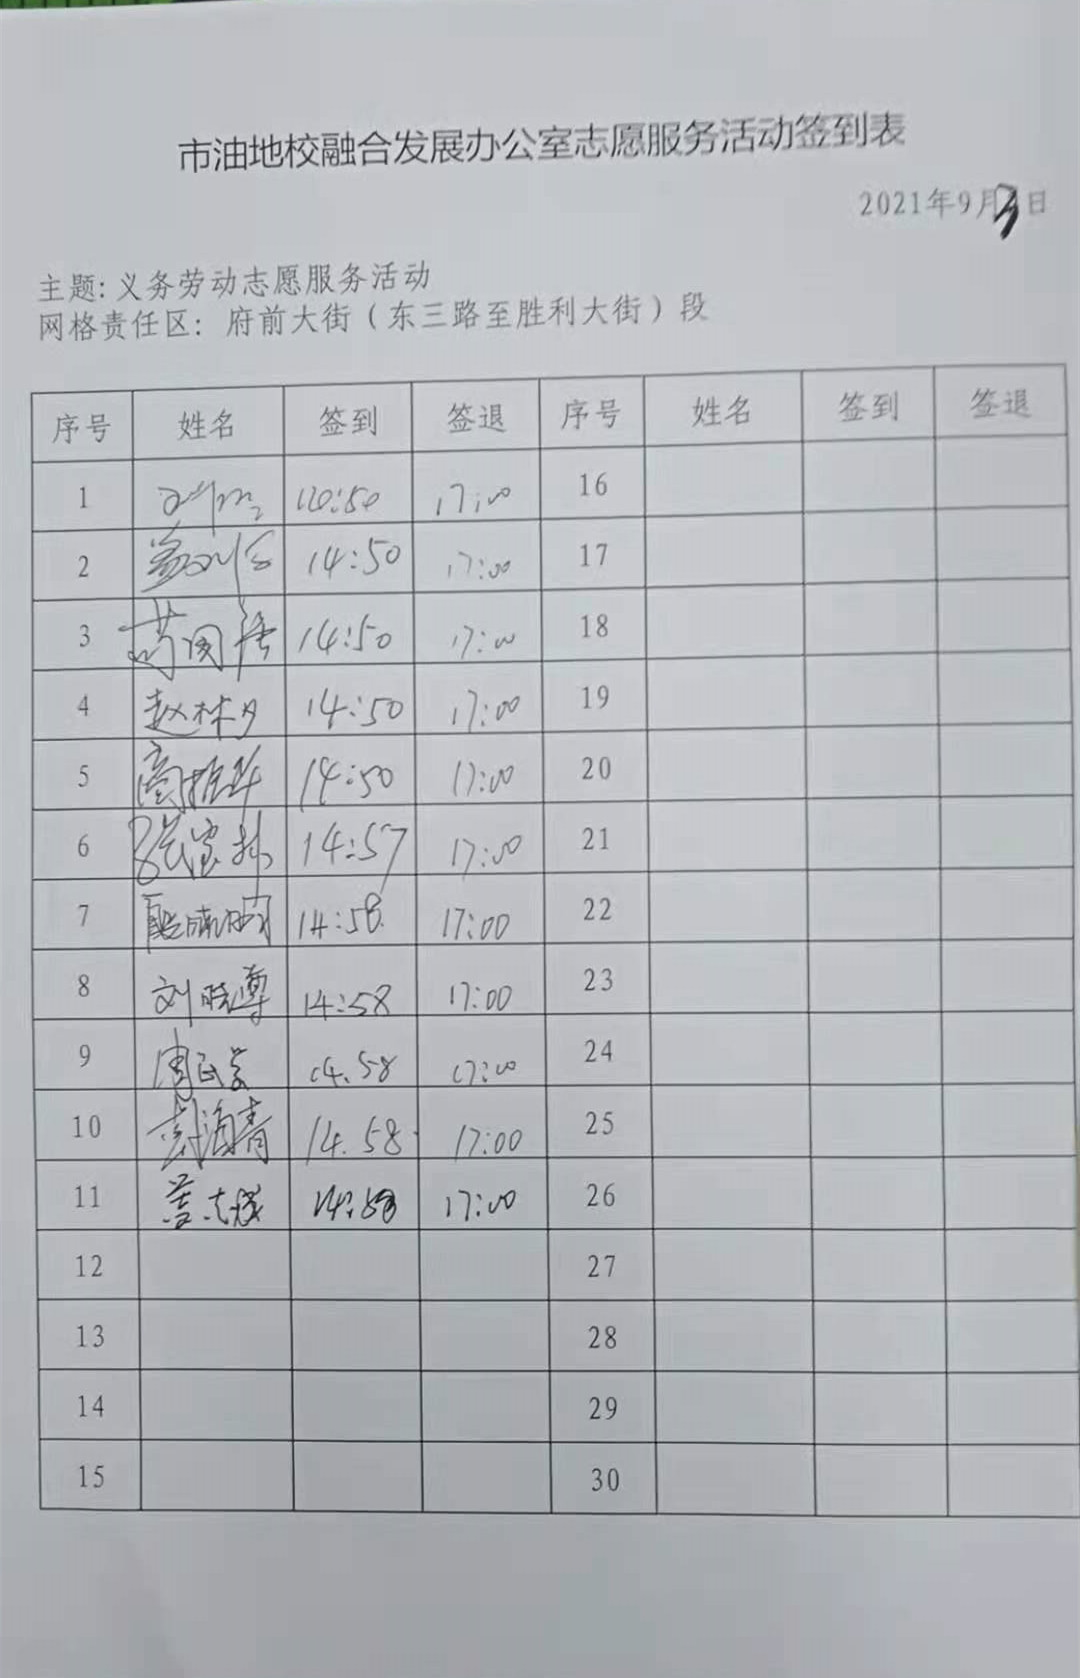 市油地校融合发展办公室志愿服务活动签到表
2021年9月3日
主题:义务劳动志愿服务活动
网格责任区：府前大街（东三路至胜利大街）段
序号 姓名 签到 签退 序号 姓名 签到 签退
1 17:00 16
2 14:50 17:00 17
3 14:50 17:00 18
4 赵林夕 14:50 17:00 19
5 14:50 17:00 20
6 14:57 17:00 21
7 14:58 17:00 22
8 刘晓 14:58 17:00 23
9 14.58 17:00 24
10 14.58 17:00 25
11 14:58 17:00 26
12 27
13 28
14 29
15 30